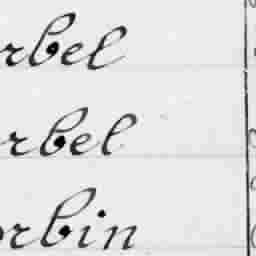 rbel
rbel
orbin